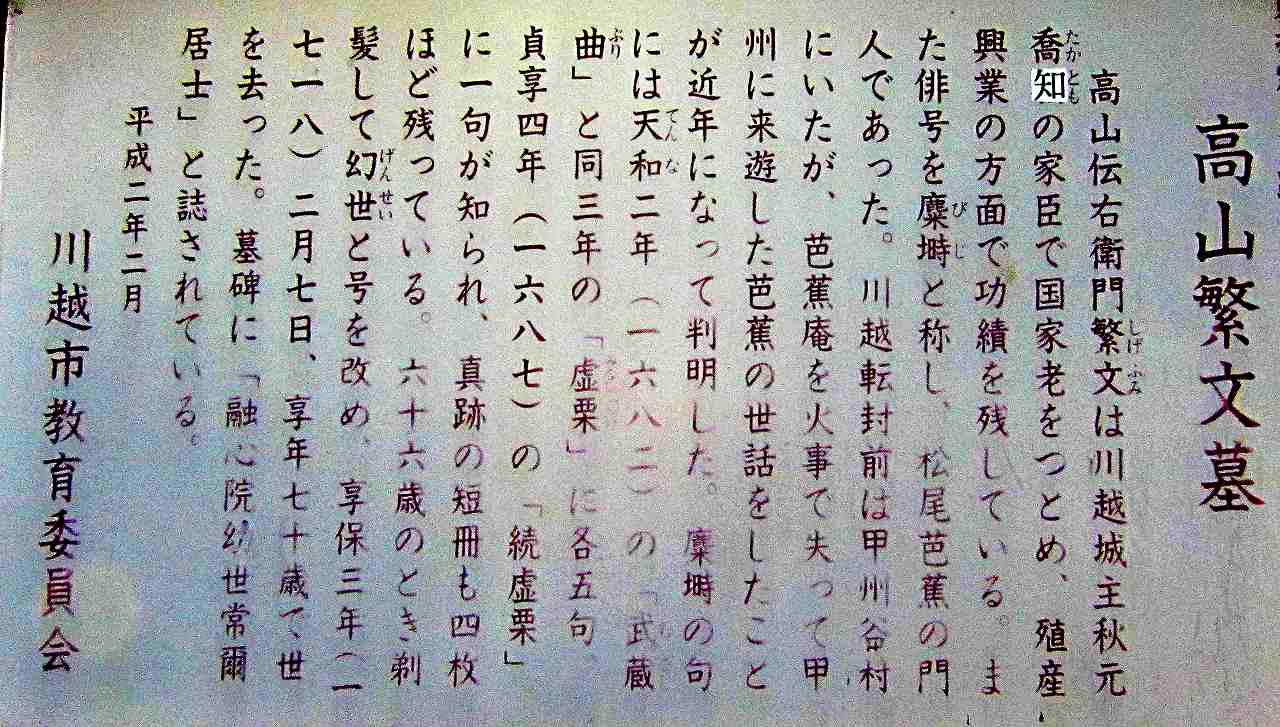 高山繁文墓
高山伝右衛門繁文は川越城主秋元
喬知の家臣で国家老をつとめ、殖産
興業の方面で功績を残している。ま
た俳号を麋塒と称し、松尾芭蕉の門
人であった。川越転封前は甲州谷村
にいたが、芭蕉庵を火事で失って甲
州に来遊した芭蕉の世話をしたこと
が近年になって判明した。麋塒の句
には天和二年(一六八二)の「武蔵
曲」と同三年の「虚栗」に各五句、
貞享四年(一六八七)の「続虚栗」
に一句が知られ、真跡の短冊も四枚
ほど残っている。六十六歳のとき剃
髪して幻世と号を改め、享保三年(一
七一八)二月七日、享年七十歳で世
を去った。墓碑に「融心院幼世常爾
居士」と誌されている。
平成二年二月
川越市教育委員会